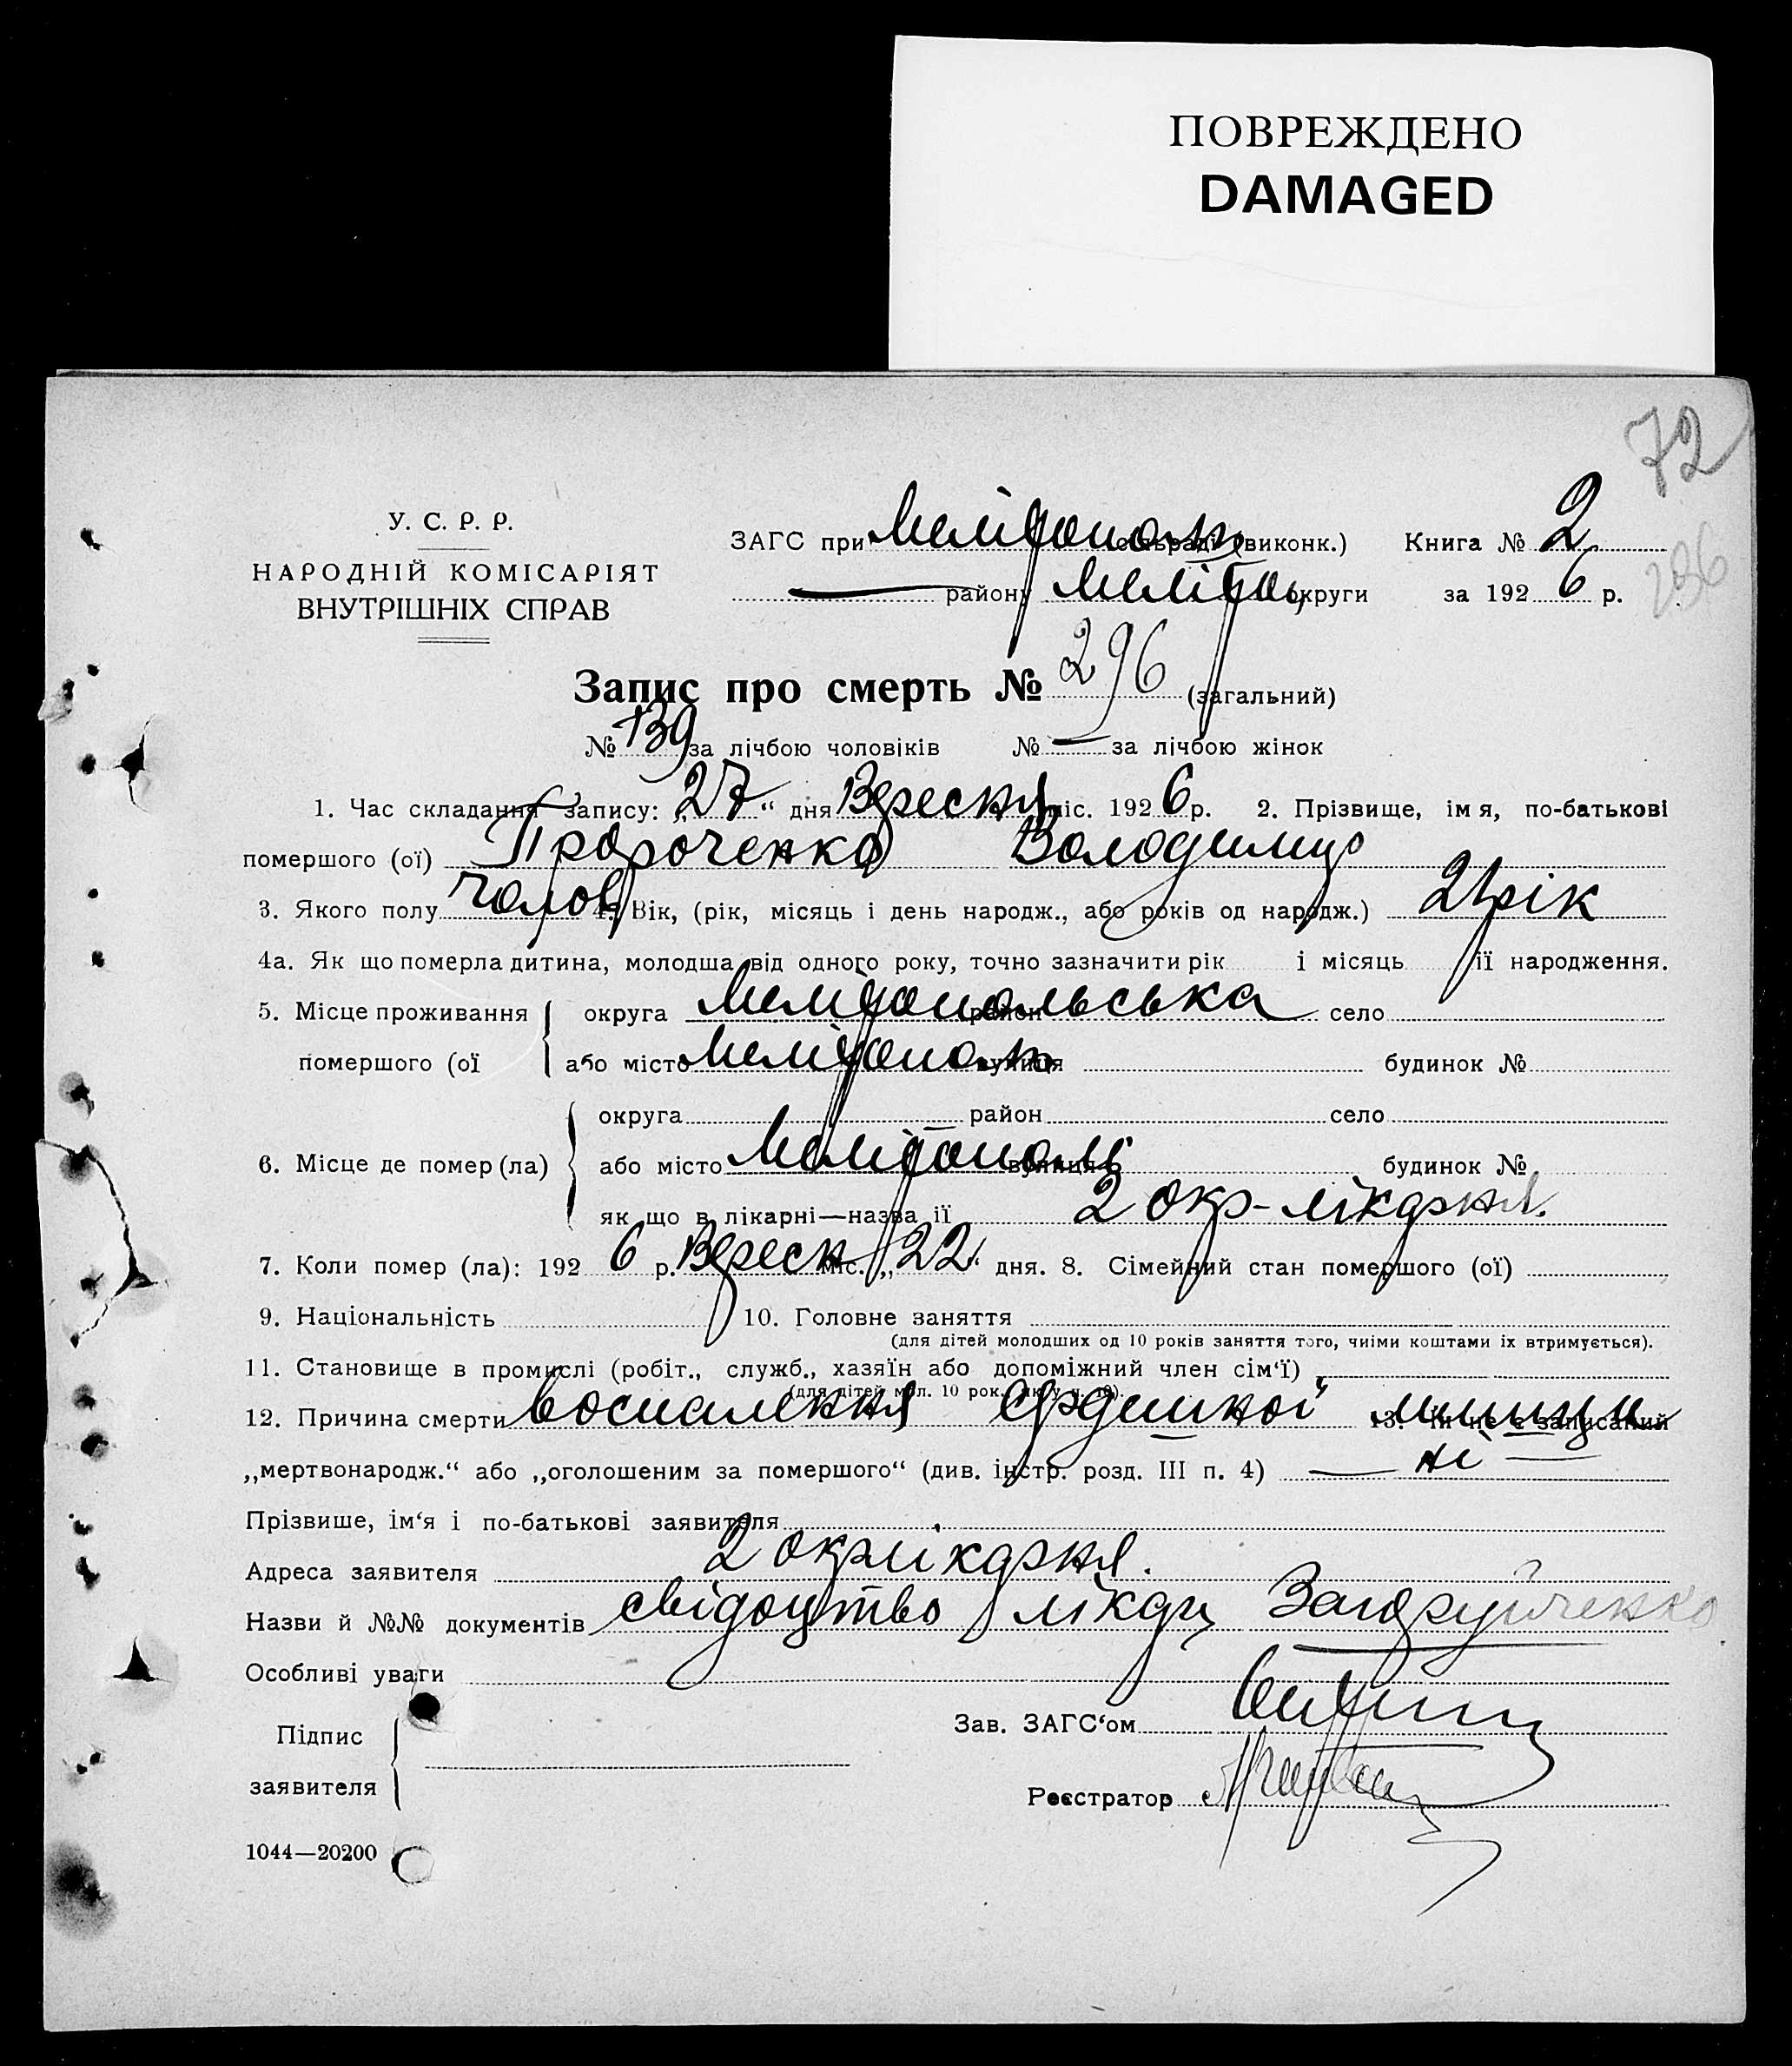 ПОВРЕЖДЕНО
DAMAGED
72
У. С. Р. Р.
НАРОДНІЙ КОМІСАРІЯТ
ВНУТРІШНІХ СПРАВ
ЗАГС при Мелітополь сільраді (виконк.) Книга № 2
району Меліто округи за 1926 р.
296
Запис про смерть № 296 (загальний)
№ 139 за лічбою чоловіків № — за лічбою жінок
1. Час складання запису: „27“ дня Вересня міс. 1926 р. 2. Прізвище, імя, по-батькові
помершого (ої) Володимир
3. Якого полу чолов 4. Вік, (рік, місяць і день народж., або років од народж.) 21 рік
4а. Як що померла дитина, молодша від одного року, точно зазначити рік і місяць її народження.
5. Місце проживання округа Мелітопольська район село
помершого (ої або місто Мелітополь вулиця будинок №
округа район село
6. Місце де помер (ла) або місто Мелітополь вулиця будинок №
як що в лікарні—назва її 2 окр-лікарня.
7. Коли помер (ла): 1926 р. Вересн міс. „22“ дня. 8. Сімейний стан помершого (ої)
9. Національність 10. Головне заняття
(для дітей молодших од 10 років заняття того, чиіми коштами їх втримується).
11. Становище в промислі (робіт., служб., хазяїн або допоміжний член сім‘ї)
(для дітей мол. 10 рок.
12. Причина смерти воспалення 13. Чи не є записаний
„мертвонародж.“ або „оголошеним за помершого“ (див. інстр. розд. III п. 4) — ні —
Прізвише, ім‘я і по-батькові заявителя
Адреса заявителя 2 окрлікарня.
Назви й №№ документів свідоцтво лікар
Особливі уваги
Підпис
заявителя
Зав. ЗАГС‘ом
Реєстратор
1044—20200